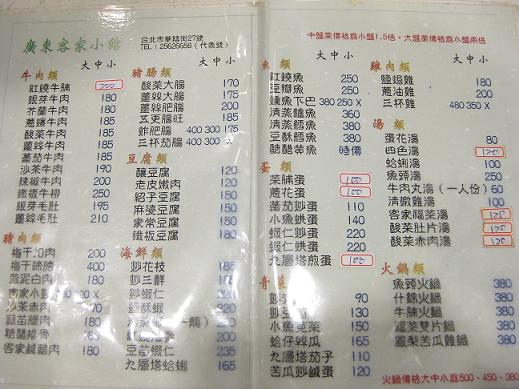 廣東客家小館
台北市華陰街27號
TEL：25626658（代表號）
牛肉類 大中小
紅燒牛腩 200
銀芽牛肉 180
芥蘭牛肉 180
蔥爆牛肉 185
酸菜牛肉 185
薑絲牛肉 185
蕃茄牛肉 185
沙茶牛肉 190
辣椒牛肉 200
鐵板牛柳 250
銀芽毛肚 195
薑絲毛肚 210
豬肉類
梅干扣肉 200
梅干蹄膀 400
蒜泥白肉 180
客家小炒
沙茶赤肉 170
蒜苗臘肉 180
糖醋排骨
客家鹹豬肉 180
豬腸類 大中小
酸菜大腸 170
薑絲大腸 175
薑絲肥腸 200
五更腸旺 185
炸肥腸 400 300 175
三杯茄腸 400 300
豆腐類
釀豆腐 120
老皮嫩肉 120
紹子豆腐 150
麻婆豆腐 150
家常豆腐 150
鐵板豆腐 180
海鮮類
炒花枝 185
炒三鮮 185
炒蝦仁 320
酥蝦 320
200
豆苗蝦仁 235
九層塔蛤蜊 165
中盤菜價格為小盤1.5倍，大盤菜價格為小盤兩倍
魚類 大中小
紅燒魚 250
豆瓣魚 250
燻魚下巴 380 250 X
清蒸鱸魚 360
清蒸鱈魚 380
豆酥鱈魚 380
醋醋黃魚 時價
蛋類
菜脯蛋 100
蔥花蛋 100
蕃茄炒蛋 110
小魚蚵蛋 140
蝦仁炒蛋 200
蝦仁蚵蛋 200
九層塔煎蛋 100
90
130
小魚莧菜 150
蛤仔絲瓜 165
九層塔茄子 110
苦瓜炒鹹蛋 120
雞肉類 大中小
鹽焗雞 180
蔥油雞 180
三杯雞 480 350 X
湯類
蛋花湯 80
四色湯 120
蛤蜊湯 150
魚頭湯 250
牛肉丸湯（一人份） 60
清燉雞湯 150
客家福菜湯 120
酸菜肚片湯 120
酸菜赤肉湯 120
火鍋類
魚頭火鍋 380
什錦火鍋 380
牛腩火鍋 380
福菜雙片鍋 380
鳳梨苦瓜雞鍋 380
火鍋價格大中小為500、450、380